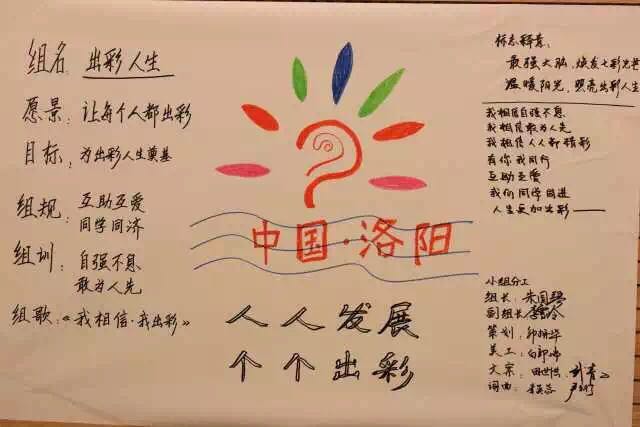 组名 出彩人生
愿景：让每个人都出彩
目标：为出彩人生奠基
组规：互助互爱
同学同济
组训：自强不息
敢为人先
组歌：《我相信·我出彩》
中国·洛阳
人人发展
个个出彩
标志释意：
最强大脑，焕发七彩光芒
温暖阳光，照亮出彩人生
我相信自强不息
我相信敢为人先
我相信人人都精彩
有你我同行
互助互爱
我们同学同进
人生更加出彩——
小组分工
组长：朱国
副组长
策划：
美工：
文案：
词曲：